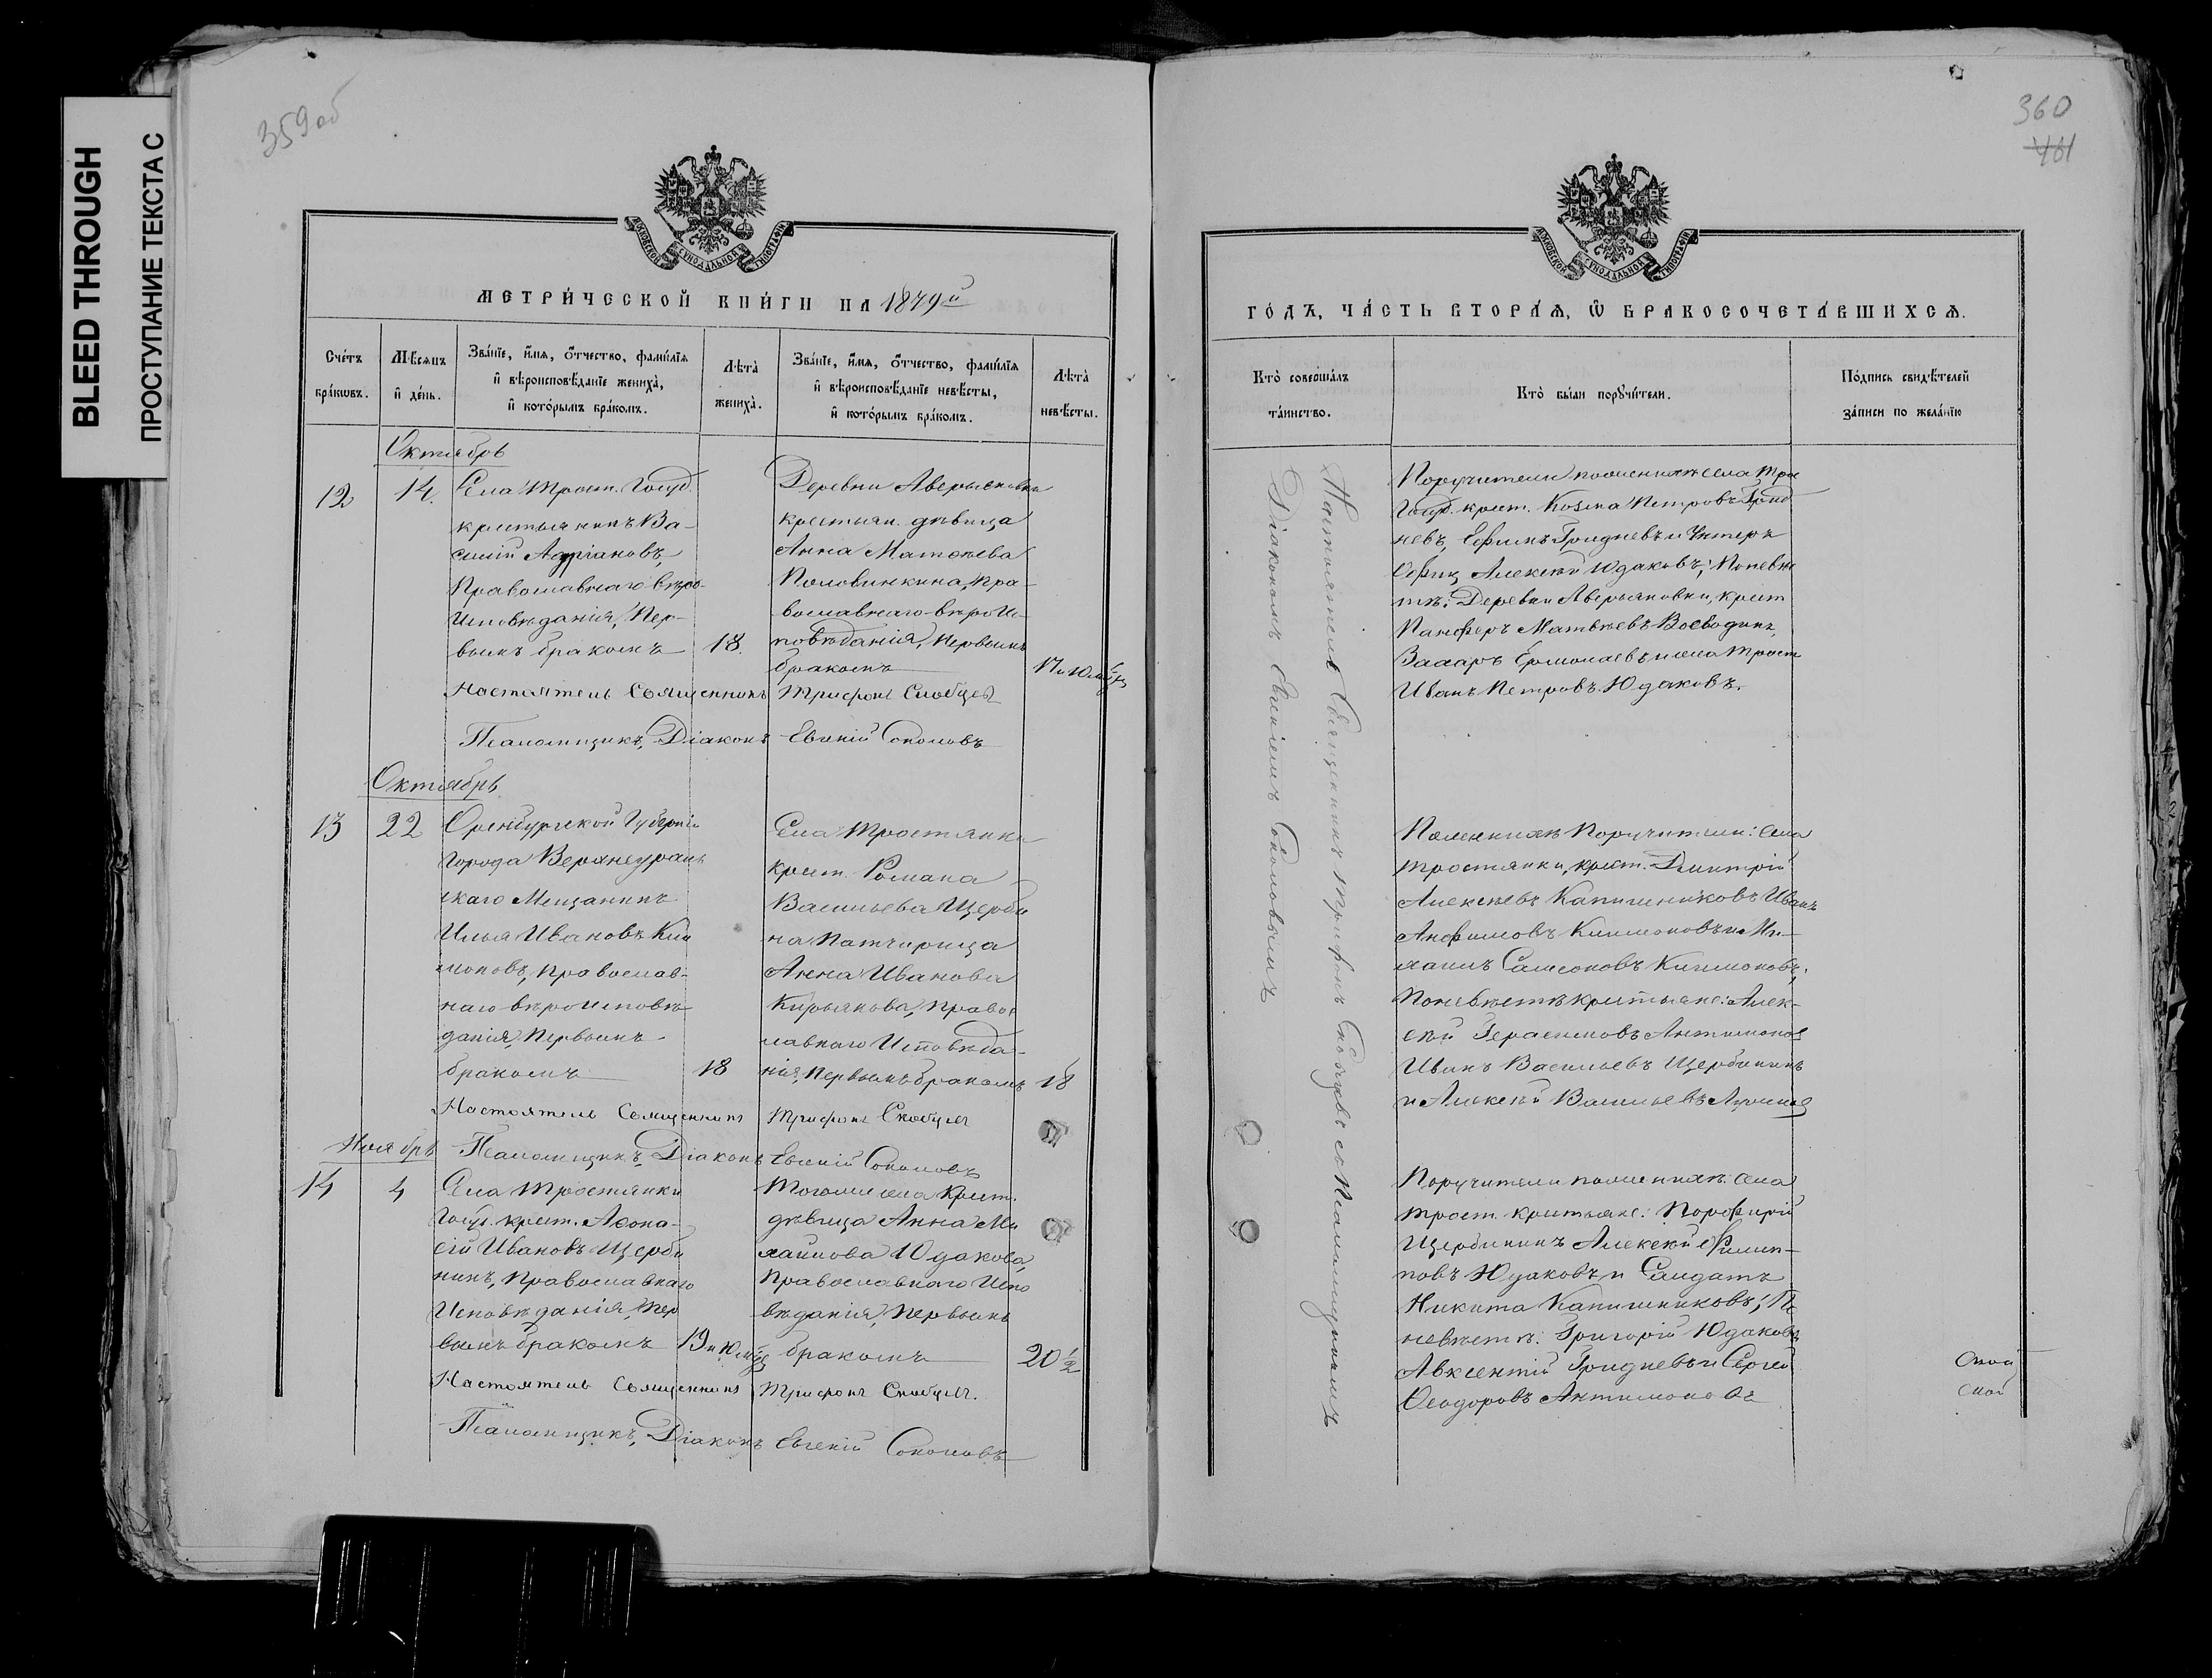 BLEED THROUGH
ПРОСТУПАНИЕ ТЕКСТА С
359 об
МОСКОВСКОЙ СѴНОДАЛЬНОЙ ТИПОГРАФІИ
МЕТРИ́ЧЕСКОЙ КНИ́ГИ НА 1879й
Сче́тъ бра́кѡвъ.
Мѣ́сяцъ и҆ де́нь.
Зва́нїе, и҆́мѧ, ѻ҆́тчество, фами́лїѧ
и҆ вѣроисповѣ́данїе жениха̀,
и҆ кото́рымъ бра́комъ.
Лѣ́та̀ жениха̀.
Зва́нїе, и҆́мѧ, ѻ҆́тчество, фами́лїѧ
и҆ вѣроисповѣ́данїе невѣ́сты,
и҆ кото́рымъ бра́комъ.
Лѣ́та̀ невѣ́сты.
Октябрь
12
14.
Села Трост. Госуд.
крестьянинъ Ва-
силій Адріановъ,
Православнаго вѣро-
Исповѣданія, Пер-
вымъ бракомъ
18.
Деревни Аверьяновки
крестьян. дѣвица
Анна Матвѣева
Половинкина, Пра-
вославнаго вѣроИс-
повѣданія, Первымъ
бракомъ
17 и
Настоятель Священникъ Трифонъ Скобцев
Псаломщикъ, Діаконъ Евгеній Соколовъ
Октябрь
13
22
Оренбургской Губерніи
Города Верхнеураль
скаго Мещанинъ
Илья Ивановъ Кли
моновъ, Православ-
наго вѣроисповѣ-
данія, Первымъ
бракомъ
18
Села Тростянки
крест. Романа
Васильева Щерби
на Патчирица
Анна Иванова
Кирьянова, Правос
лавнаго Исповѣда-
нія, Первымъ бракомъ
18
Настоятель Священникъ Трифонъ Скобцев
Ноябрь
Псаломщикъ, Діаконъ Евгеній Соколовъ
14
4
Села Тростянки
Госуд. крест. Афона-
сій Ивановъ Щерби
нинъ, Православнаго
Исповѣданія, Пер
вымъ бракомъ
19 и
Тогоже села Крест.
дѣвица Анна Ми
хаилова Юдакова,
Православнаго Испо
вѣданія, Первымъ
бракомъ
20 1/2
Настоятель Священникъ Трифонъ Скобцев.
Псаломщикъ, Діаконъ Евгеній Соколовъ
360
461
МОСКОВСКОЙ СѴНОДАЛЬНОЙ ТИПОГРАФІИ
ГО́ДЪ, ЧА́СТЬ ВТОРА́Ѧ, Ѡ҆ БРАКОСОЧЕТА́ВШИХСѦ.
Кто̀ соверша́лъ та́инство.
Кто̀ бы́ли порꙋчи́тели.
По́дпись свидѣ́телей за́писи по жела́нїю
Настоятель Священникъ Трифонъ Скобцевъ со Псаломщикомъ
Діакономъ Евгеніемъ Соколовымъ
Поручители по женихѣ села Трос
Госуд. крест. Козма Петровъ Грид
невъ, Ефимъ Гридневъ и Унтеръ
Офиц. Алексѣй Юдаковъ; По невѣс
тѣ: Деревни Аверьяновки, крест
Панферъ Матвѣевъ Воеводинъ,
Захаръ Ермолаевъ и села Трост
Иванъ Петровъ Юдаковъ.
По женихѣ Поручители: села
Тростянки, крест. Димитрій
Алексѣевъ Капишниковъ Иванъ
Анфимовъ Климоновъ и Ми-
хаилъ Самсоновъ Климоновъ;
По невѣстѣ крестьяне: Алек-
сѣй Герасимовъ Антимонов
Иванъ Васильевъ Щербининъ
и Алексѣй Васильевъ
Поручители по женихѣ: села
Трост. крестьяне: Порфирій
Щербининъ Алексѣй Филип-
повъ Юдаковъ и Салдатъ
Никита Капишниковъ; По
невѣстѣ: Григорій Юдаковъ
Авксентій Гридневъ и Сергей
Ѳеодоровъ Антимоновъ